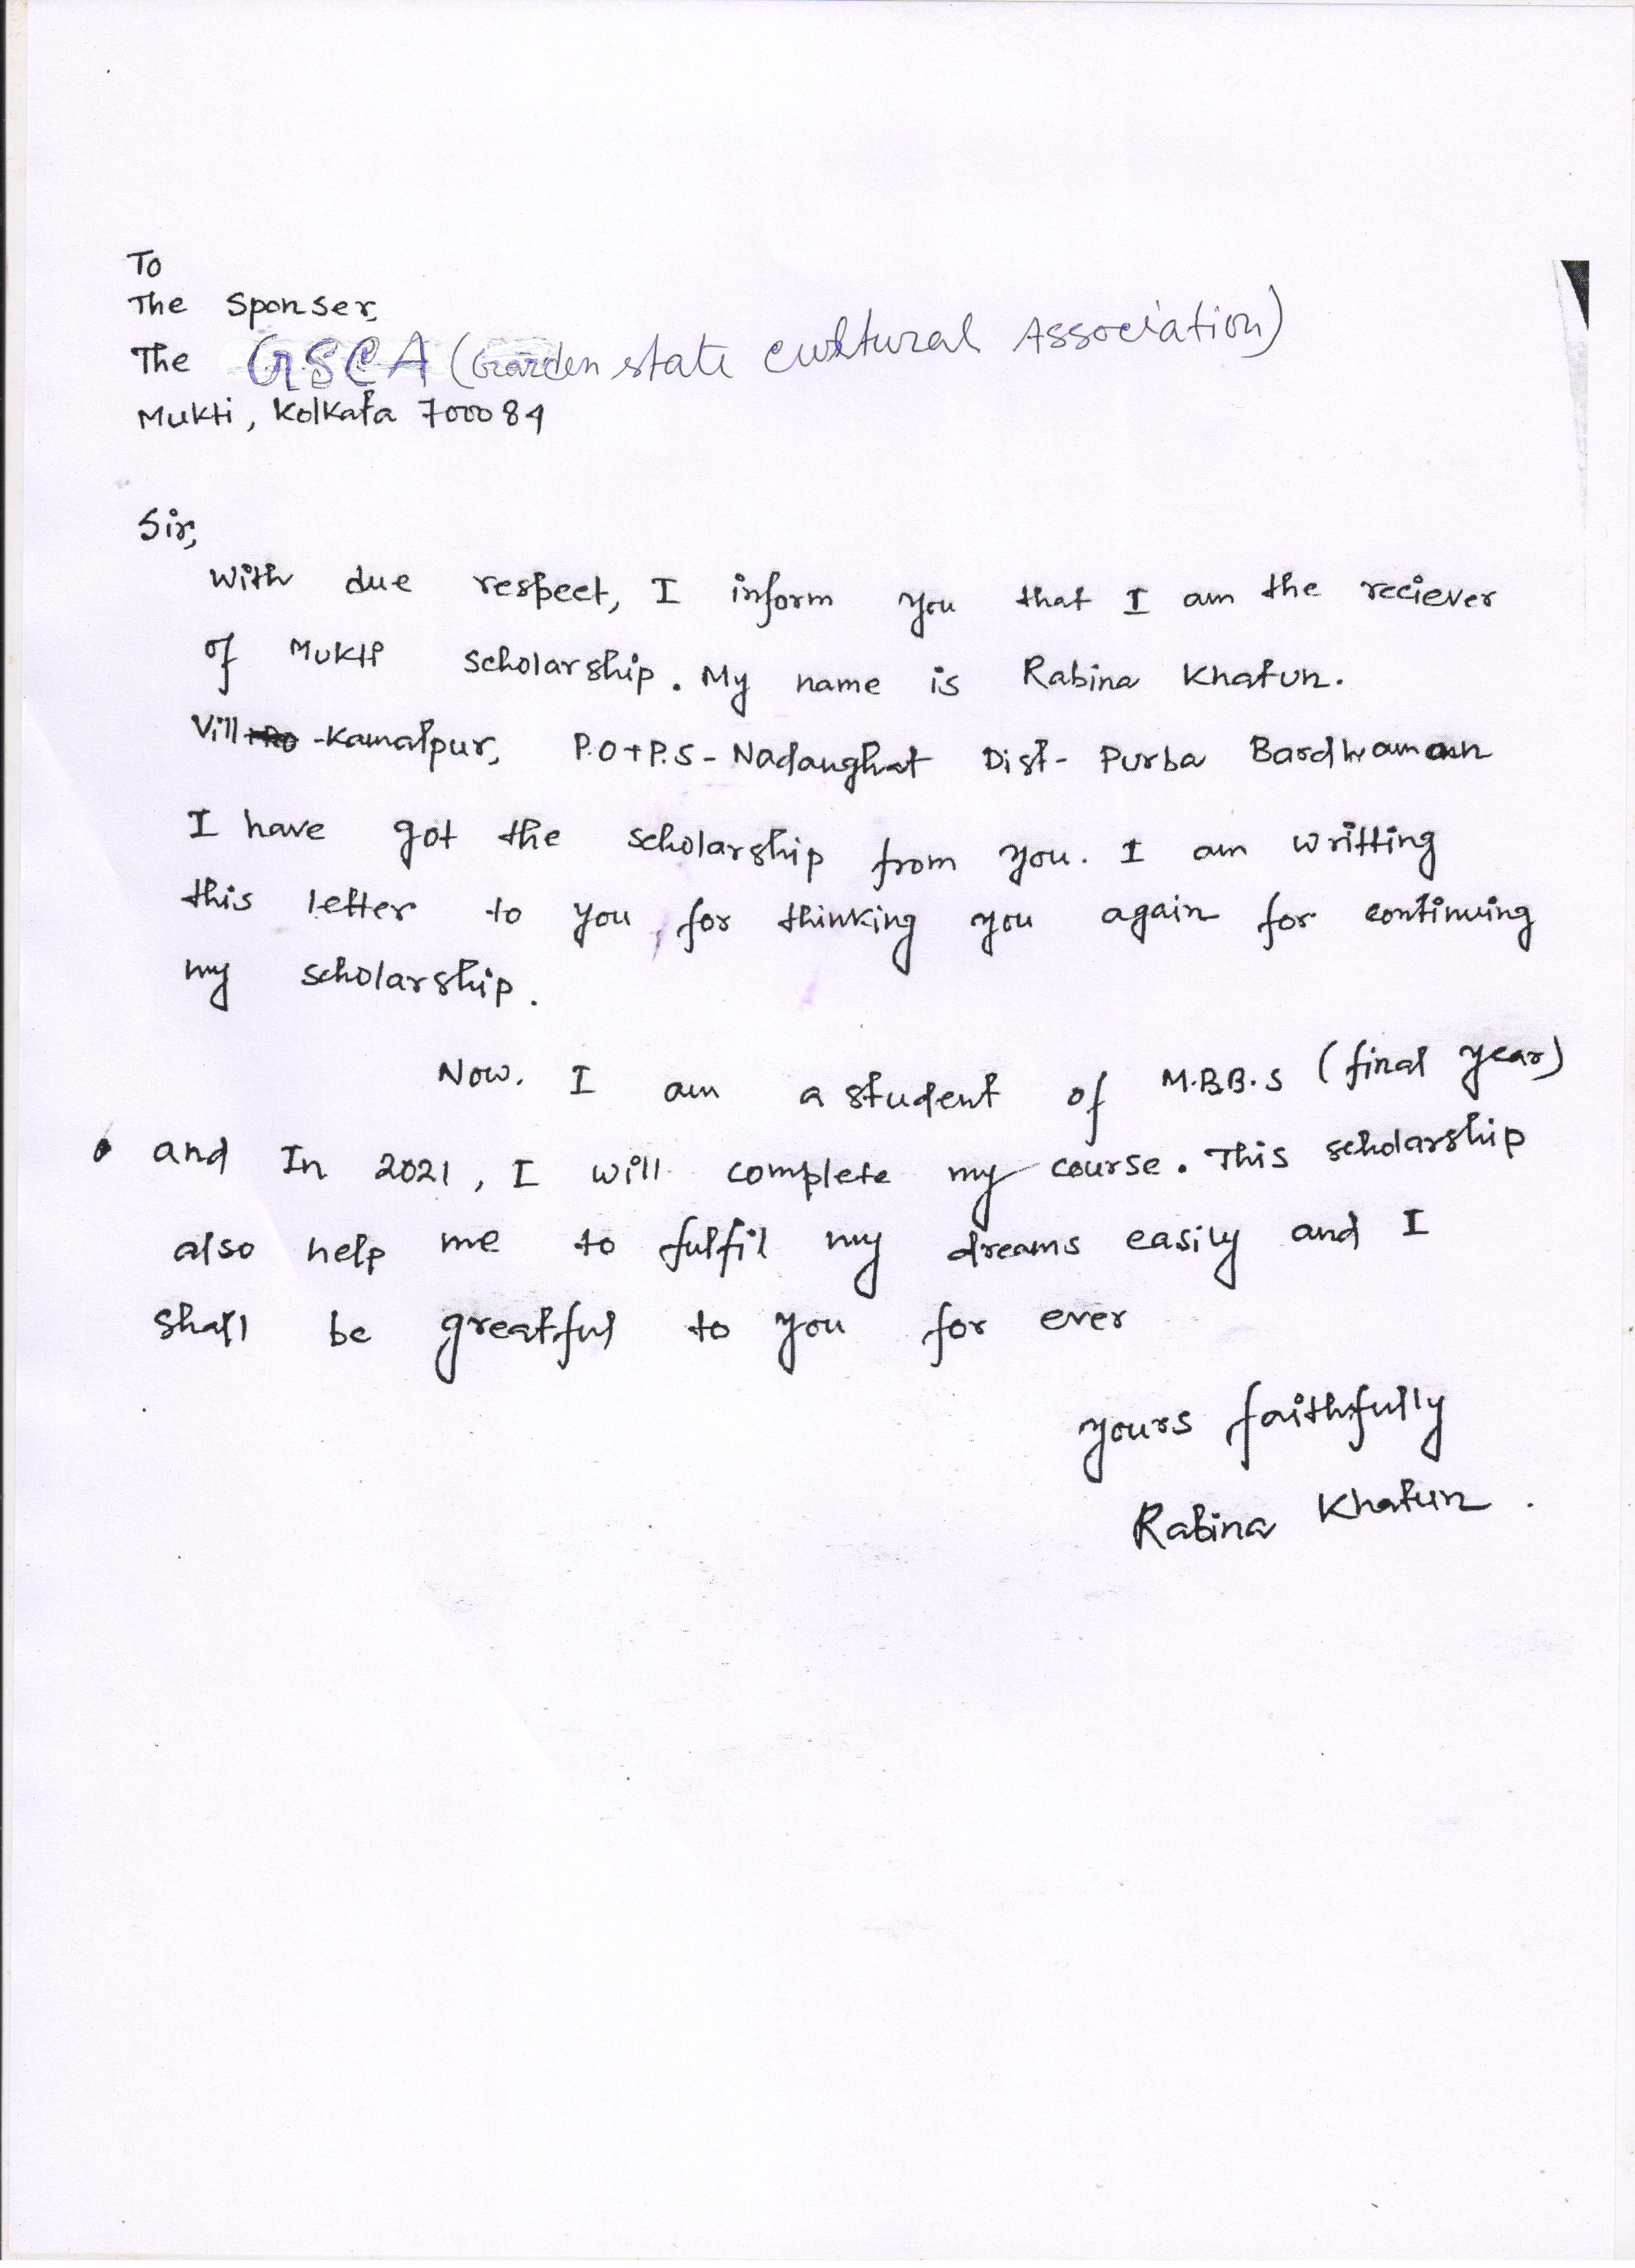 To
The Sponser,
The GSCA (Garden state cultural Association)
Mukti, Kolkata 700084
Sir,
With due respect, I inform you that I am the reciever
of Mukti scholarship. My name is Rabina Khatun.
Vill - Kamalpur, P.O+P.S - Nadanghat Dist- Purba Bardhaman
I have got the scholarship from you. I am writting
this letter to you, for thinking you again for continuing
my scholarship.
Now. I am a student of M.B.B.S (final year)
and In 2021, I will complete my course. This scholarship
also help me to fulfil my dreams easily and I
shall be greatful to you for ever
yours faithfully
Rabina Khatun.